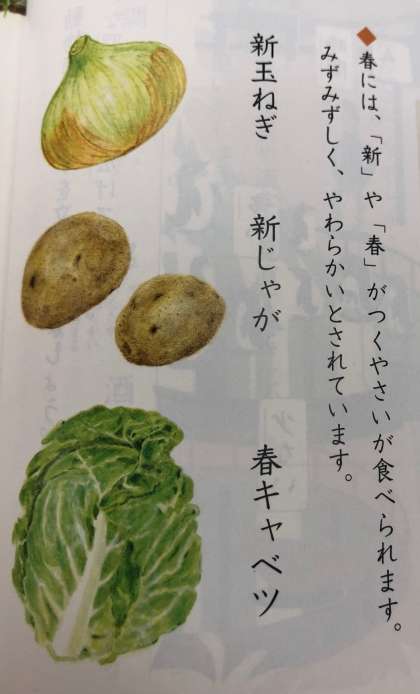 ◆春には、「新」や「春」がつくやさいが食べられます。
みずみずしく、やわらかいとされています。
新玉ねぎ
新じゃが
春キャベツ